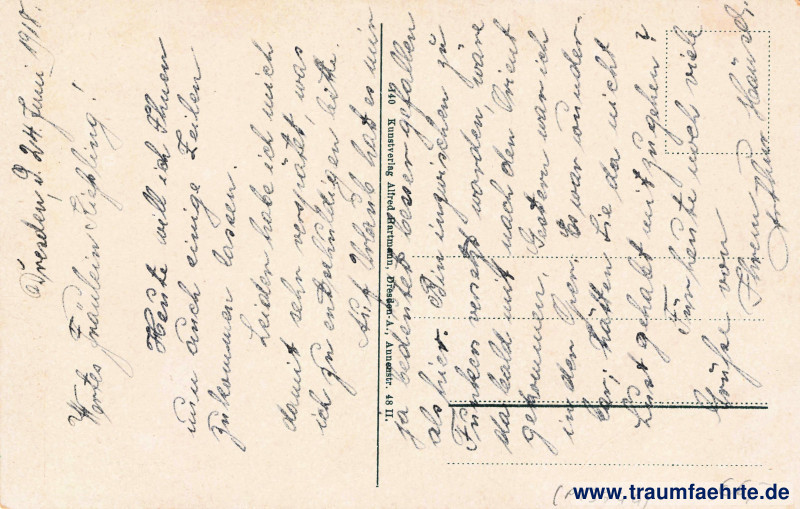 Dresden, d. 24. Juni 1918.
Wertes Fräulein Liessling!
Heute will ich Ihnen
nun auch einige Zeilen
zukommen lassen.
Leider habe ich mich
damit sehr verspätet, was
ich zu entschuldigen bitte.
Auf Urlaub hat es mir
ja bedeutet besser gefallen
als hier. Bin inzwischen zu
Funker versetzt worden, wäre
da bald mit nach den Orient
gekommen. Gestern war ich
in den Oper. Es war wunder-
bar; hätten Sie da nicht
Lust gehabt mitzugehen?
Für heute noch viele
Grüße von
Ihrem
Arthur
6140 Kunstverlag Alfred Hartmann, Dresden-A., Annenstr. 48 II.
www.traumfaehrte.de